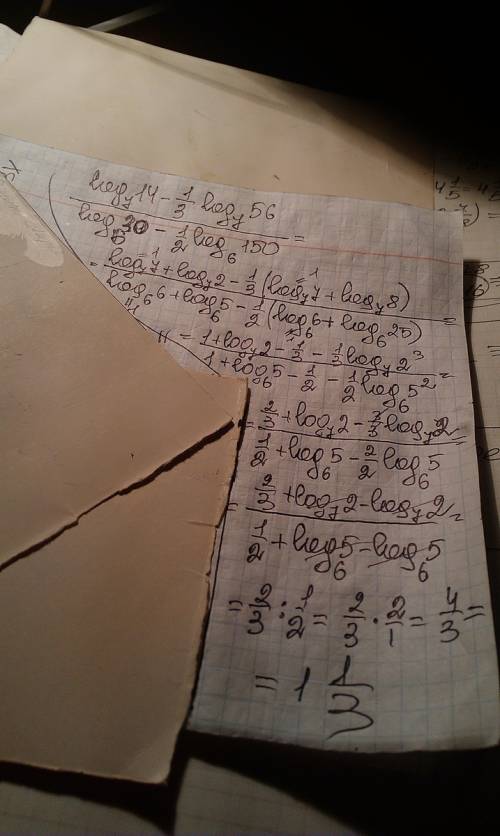 log₇14 - 1/3 log₇56
log₆30 - 1/2 log₆150 =
= log₇7 + log₇2 - 1/3 (log₇7 + log₇8)
log₆6 + log₆5 - 1/2 (log₆6 + log₆25) =
= 1 + log₇2 - 1/3 - 1/3 log₇2³
1 + log₆5 - 1/2 - 1/2 log₆5² =
= 2/3 + log₇2 - 3/3 log₇2
1/2 + log₆5 - 2/2 log₆5 =
= 2/3 + log₇2 - log₇2
1/2 + log₆5 - log₆5 =
= 2/3 : 1/2 = 2/3 · 2/1 = 4/3 =
= 1 1/3